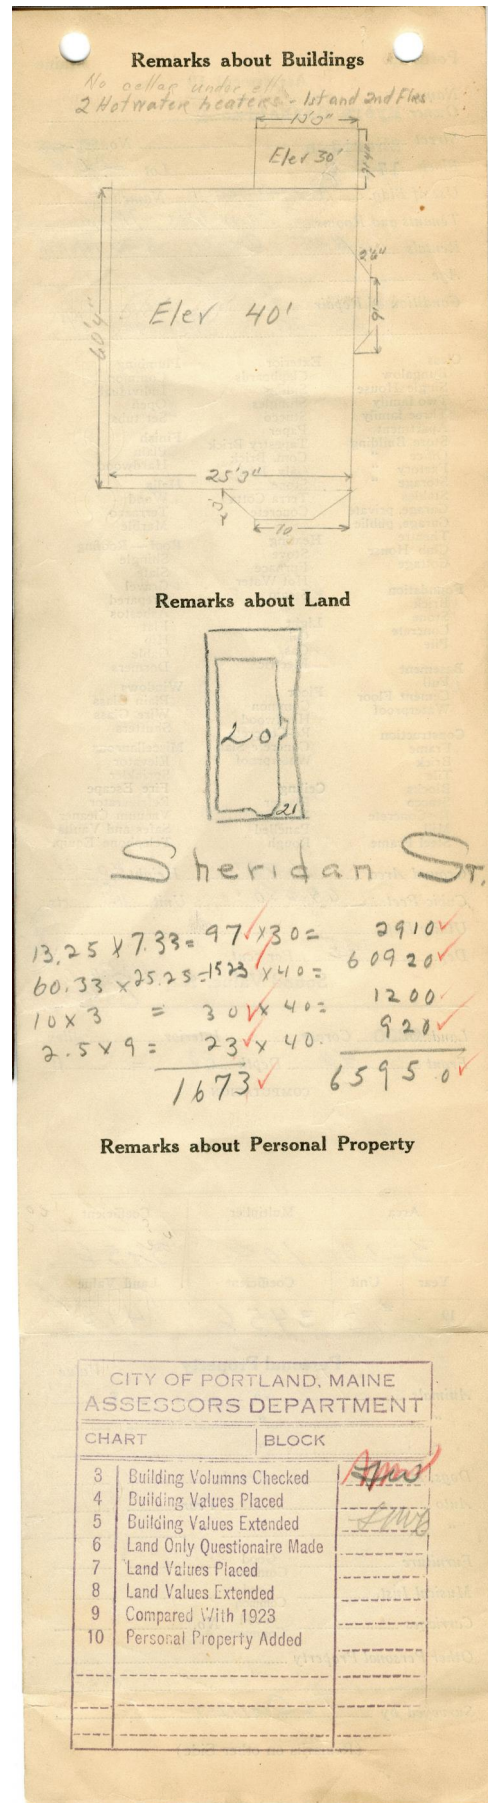 Remarks about Buildings
No cellar under ell
2 Hot water heaters - 1st and 2nd Flrs.
Elev 30'
2'6"
60'4"
Elev 40'
9'
25'3"
10
Remarks about Land
20
21
Sheridan St.
13.25 x 7.33 = 97 x 30 = 2910
60.33 x 25.25 = 1523 x 40 = 60920
10 x 3 = 30 x 40 = 1200
2.5 x 9 = 23 x 40. 920
1673 65950
Remarks about Personal Property
CITY OF PORTLAND, MAINE
ASSESSORS DEPARTMENT
CHART BLOCK
3 Building Volumns Checked
4 Building Values Placed
5 Building Values Extended
6 Land Only Questionaire Made
7 Land Values Placed
8 Land Values Extended
9 Compared With 1923
10 Personal Property Added